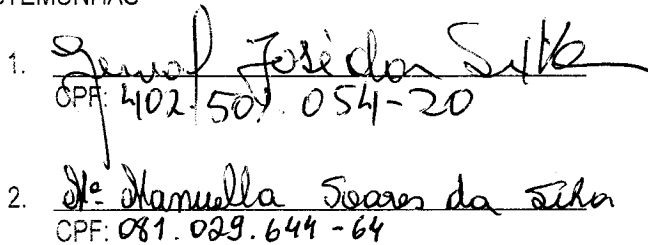 TEMUNHAS
1. José dos Silva
CPF: 402.501.054-20
2. Mª Manuella Soares da Silva
CPF: 081.029.644-64